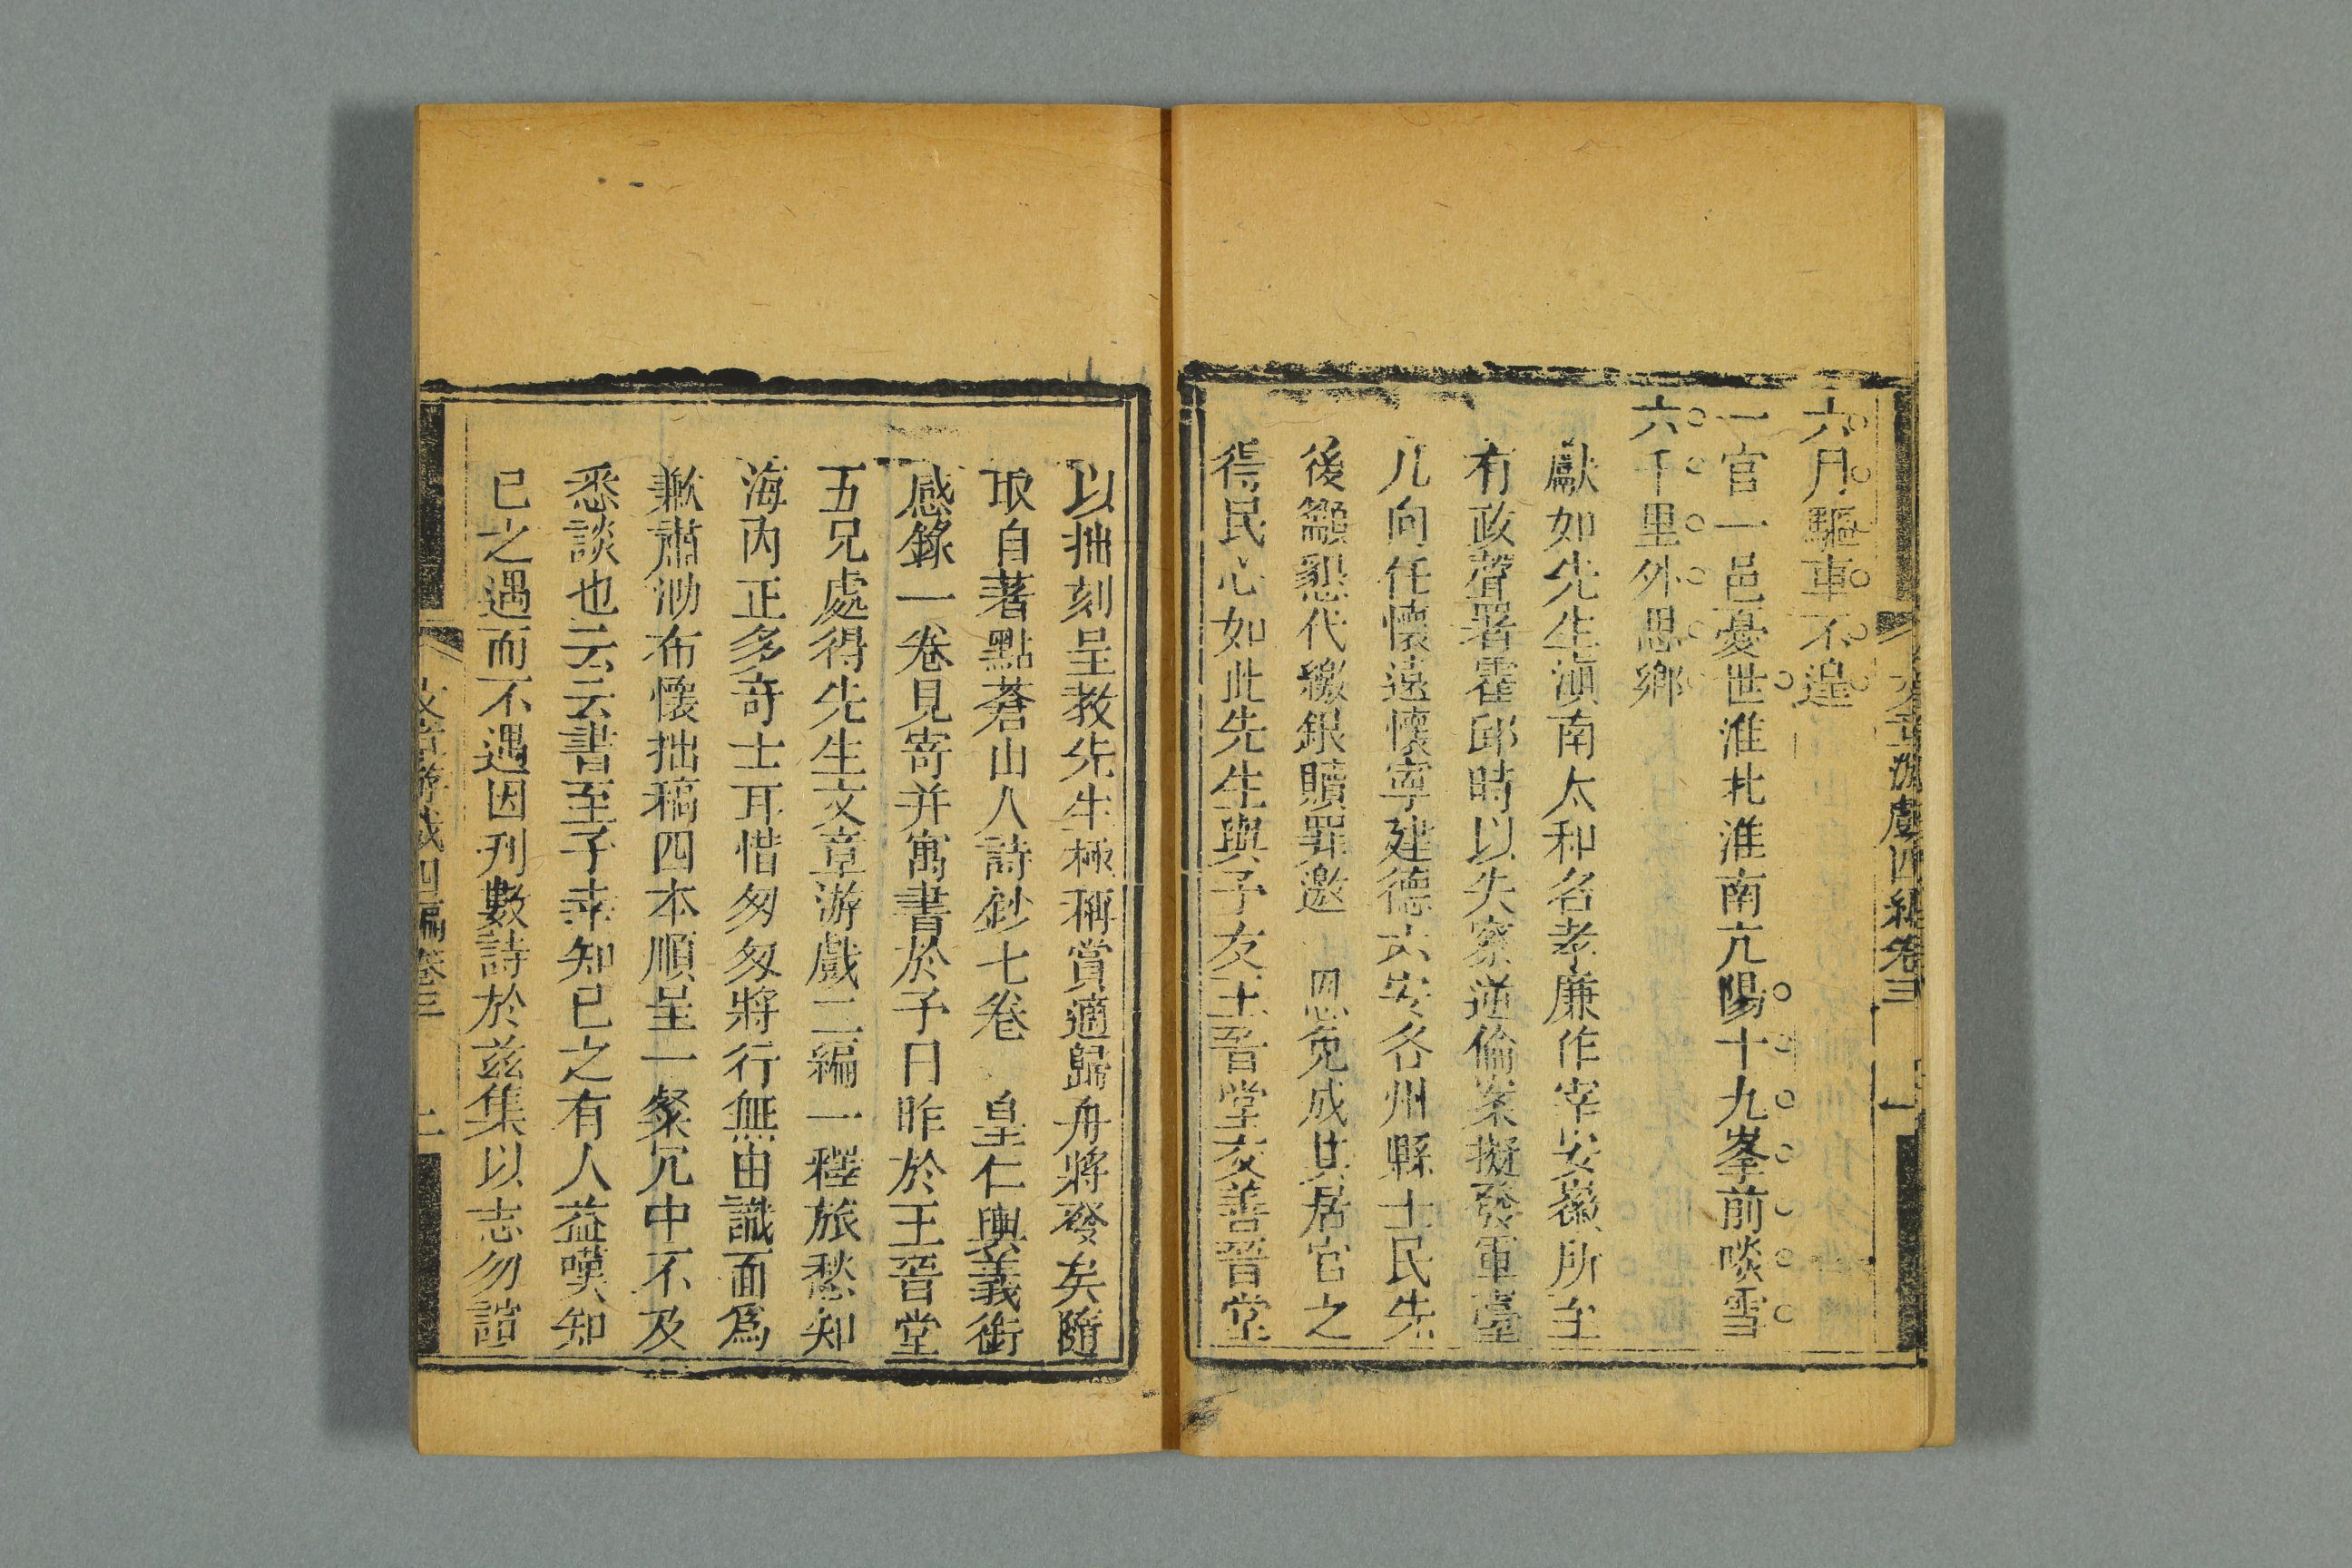 文章游戲四編卷三
六月驅車不遑
一官一邑憂世淮北淮南亢陽十九峯前啖雪
六千里外思鄉
獻如先生滇南太和名孝廉作宰安徽所至
有政聲署霍邱時以失察逆倫案擬發軍臺
凡向任懷遠懷寧建德六安各州縣士民先
後籲懇代繳銀贖罪邀　恩免成其居官之
得民心如此先生與予友王晉堂交善晉堂
以拙刻呈教先生極稱賞適歸舟將發矣隨
取自著點蒼山人詩鈔七卷　皇仁輿義衘
感錄一卷見寄并寓書於予曰昨於王晉堂
五兄處得先生文章游戲二編一釋旅愁知
海內正多奇士耳惜匆匆將行無由識面為
歉肅泐布懷拙稿四本順呈一粲冗中不及
悉談也云云書至予幸知己之有人益嘆知
己之遇而不遇因刋數詩於茲集以志勿諠
文章游戲四編卷三　二